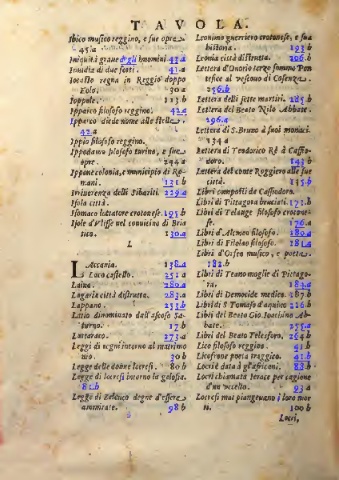 TAVOLA.
Ibico musico reggino, e sue opre.
45.a
Iniquità grande degli huomini 43.a
Inuidia di due sorti. 41.a
Iocasto regna in Reggio doppo
Eolo. 30 a
Ioppole. 113 b
Ipparco filosofo reggino. 42.a
Ipparco diede nome alle stelle.
42.a
Ippio filosofo reggino.
Ippodamo filosofo turino, e sue
opre. 294.a
Ippone colonia, e municipio di Romani.
131 b
Irriuerenza delli Sibariti. 229.a
Isola città.
Isomaco lottatore crotonese. 195 b
Isole d'Vlisse nel conuicino di Briatico.
130.a
L
LAccaria. 138.a
Loco castello. 251.a
Laino. 280.a
Lagaria città distrutta. 283.a
Lappano. 253.b
Latio dinominato dall'ascoso Saturno.
17.b
Lattaraco 273.a
Leggi di segni intorno al maritimo
30 b
Legge delle donne locresi. 80 b
Legge di locresi intorno la gelosia.
82.b
Legge di Zeleuco degne d'essere
ammirate. 98 b
Leonimo guerriero crotonese, e sua
historia. 193 b
Leonia città distrutta. 206.b
Lettera d'Onorio terzo sommo Pontefice
al vescouo di Cosenza.
256.b
Lettera delli sette martiri. 285.b
Lettera del Beato Nilo Abbate.
296.a
Lettera di S. Bruno à suoi monaci
134 a
Lettera di Teodorico Rè à Cassiodoro.
143 b
Lettera del conte Ruggiero alle sue
città. 145.b
Libri composti da Cassiodoro.
Libri di Pittagora bruciati. 172.b
Libri di Telauge filosofo crotonese.
176.a
Libri d'Alcmeo filosofo. 180.a
Libri di Filolao filosofo. 181.a
Libri d'Orfeo musico, e poeta.
182 b
Libri di Teano moglie di Pittagora.
184.a
Libri di Democide medico. 187 b
Libri di S Tomaso d'aquino 216 b
Libri del Beato Gio. Ioachino Abbate.
255.a
Libri del Beato Telesforo, 264 b
Lico filosofo reggino. 43.b
Licofrone poeta traggico. 42.b
Locri è data à gl'africani. 88.b
Locri chiamata Ierace per cagione
d'un vccello. 93.a
Locresi mai piangeuano i loro morti.
100 b
Locri,